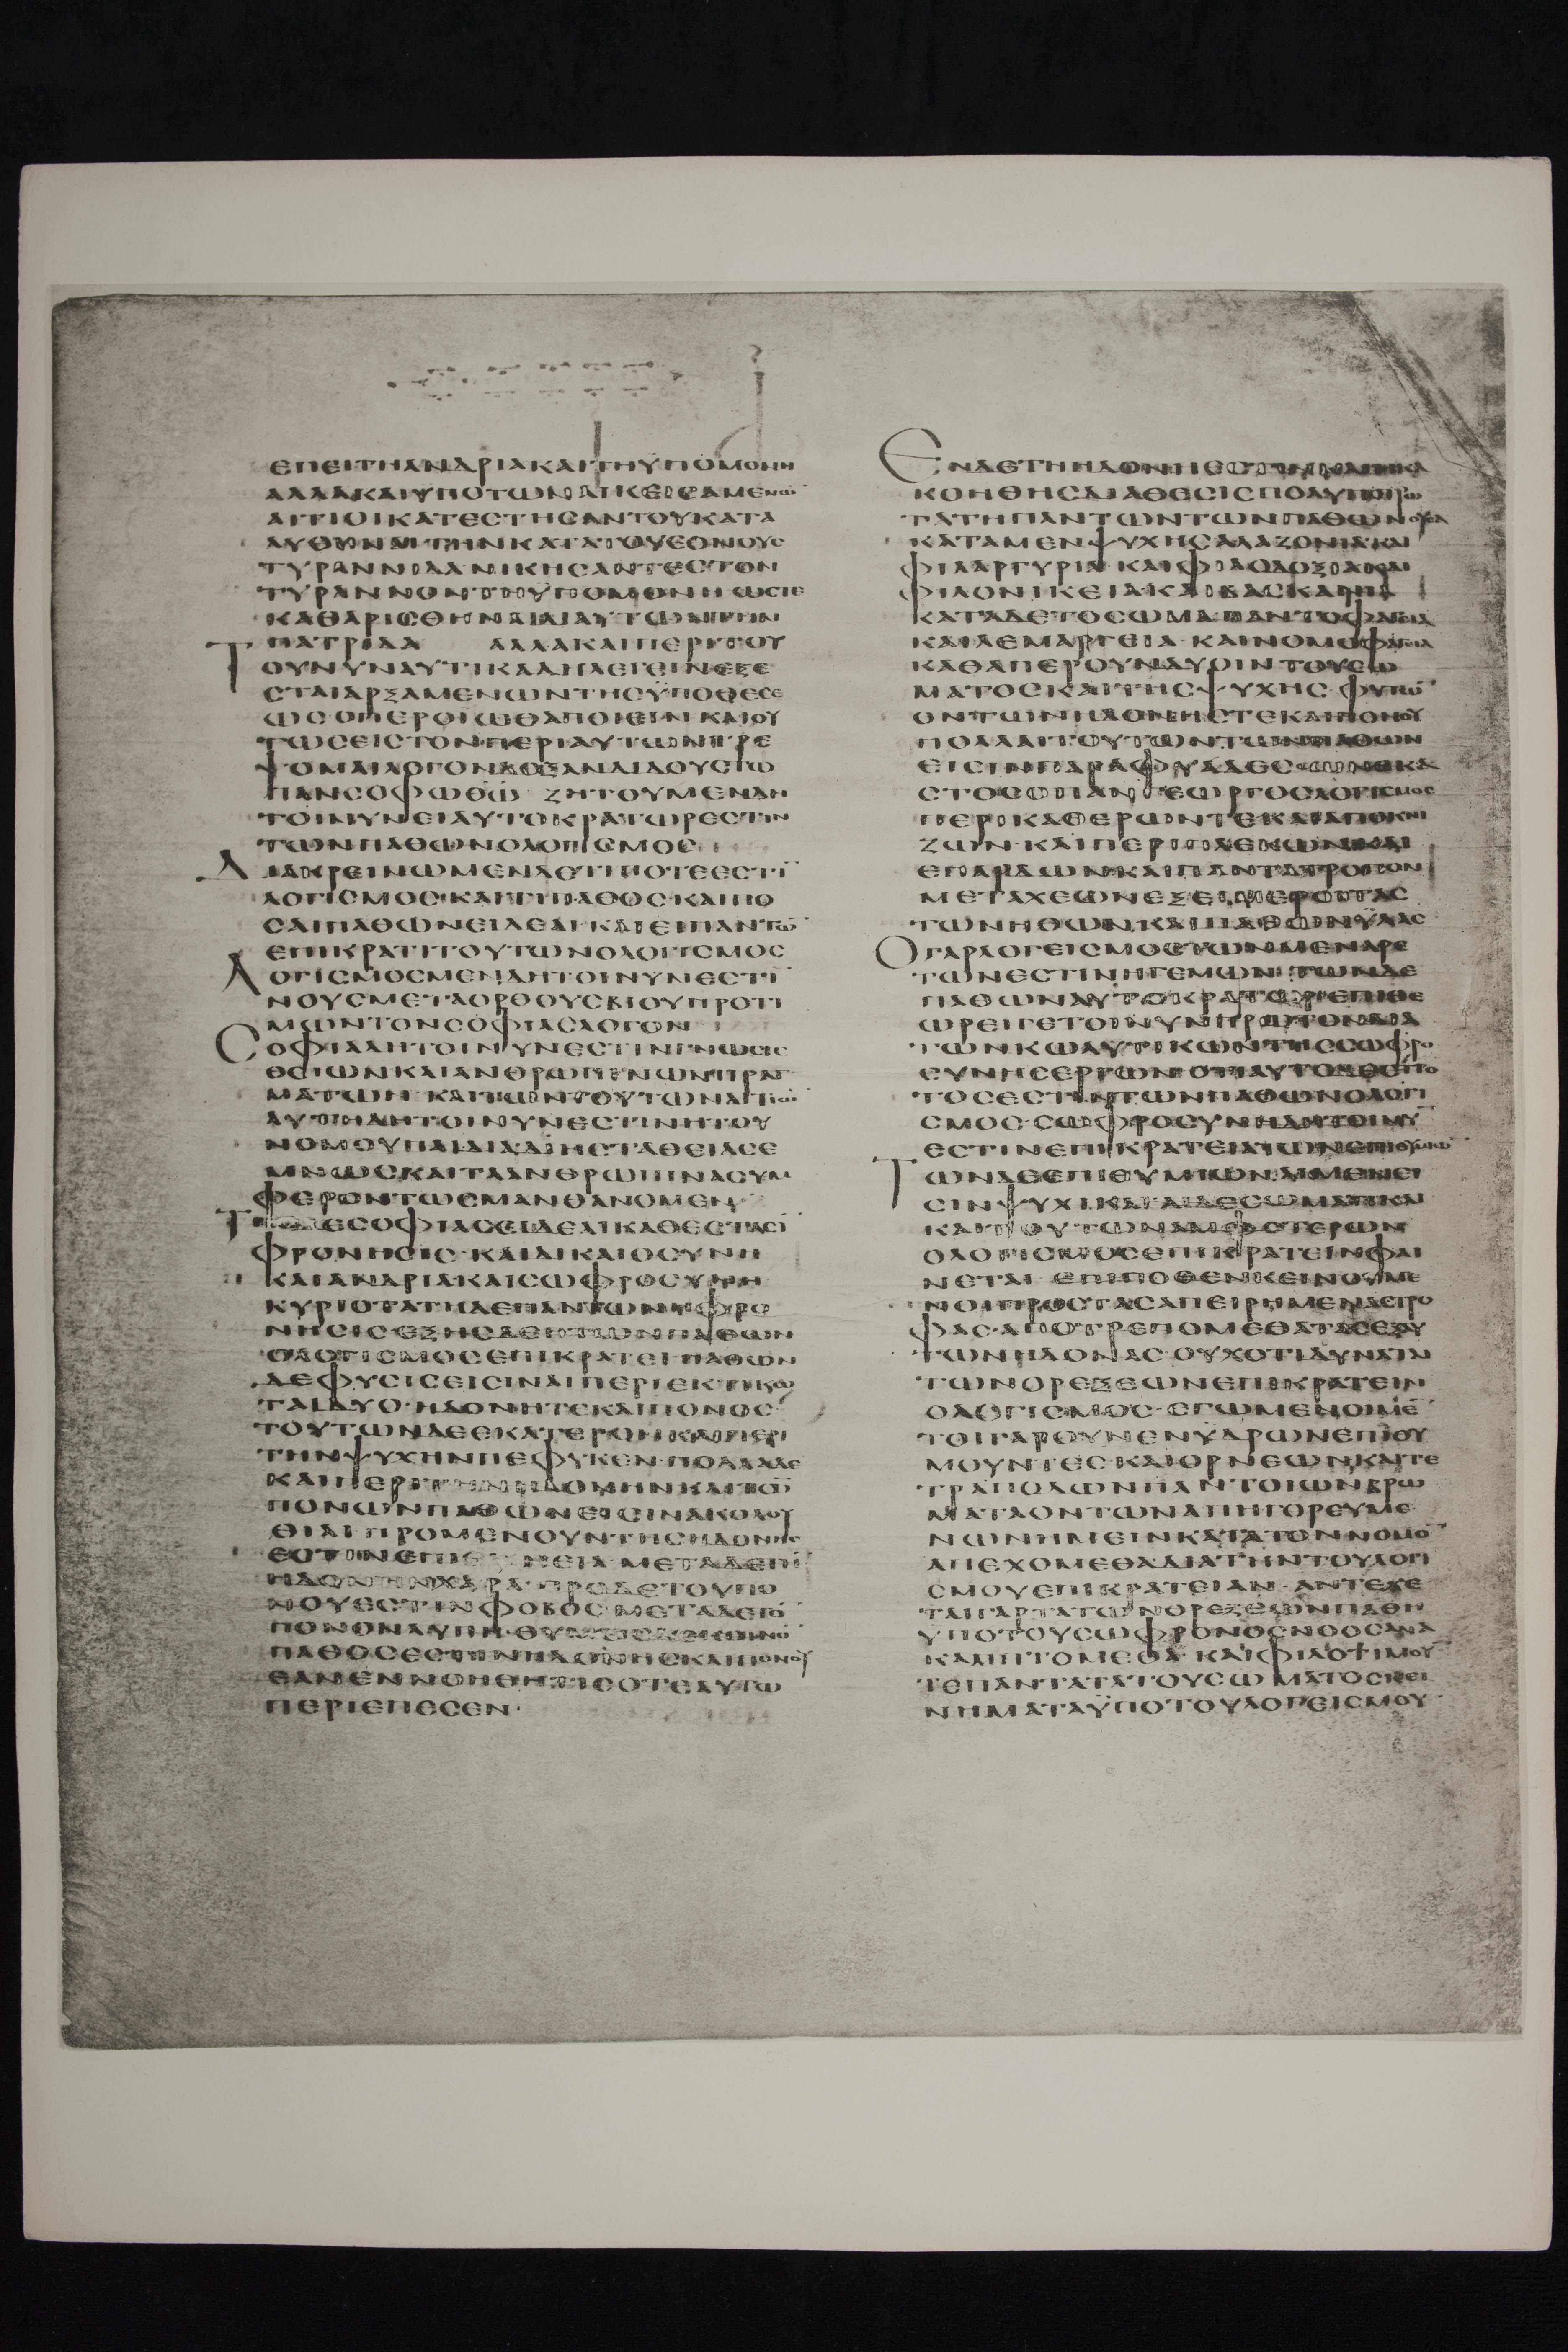 ΕΠΕΙΤΗΑΝΔΡΙΑΚΑΙΤΗΫΠΟΜΟΝΗ
ΑΛΛΑΚΑΙΥΠΟΤΩΝΑΙΚΕΙΣΑΜΕΝΩΝ
ΑΙΤΙΟΙΚΑΤΕΣΤΗΣΑΝΤΟΥΚΑΤΑ
ΛΥΘΗΝΑΙΤΗΝΚΑΤΑΤΟΥΕΘΝΟΥΣ
ΤΥΡΑΝΝΙΔΑΝΙΚΗΣΑΝΤΕΣΤΟΝ
ΤΥΡΑΝΝΟΝΤΗΫΠΟΜΟΝΗΩΣΤΕ
ΚΑΘΑΡΙΣΘΗΝΑΙΔΙΑΥΤΩΝΤΗΝ
ΠΑΤΡΙΔΑ ΑΛΛΑΚΑΙΠΕΡΙΤΟΥ
ΤΟΥΝΥΝΑΥΤΙΚΑΔΗΛΕΓΕΙΝΕΞΕ
ΣΤΑΙΑΡΞΑΜΕΝΩΝΤΗΣΫΠΟΘΕΣΕ
ΩΣΟΠΕΡΟΙΩΘΑΠΟΙΕΙΝΚΑΙΟΥ
ΤΩΣΕΙΣΤΟΝΠΕΡΙΑΥΤΩΝΤΡΕ
ΨΟΜΑΙΛΟΓΟΝΔΟΞΑΝΔΙΔΟΥΣΤΩ
ΠΑΝΣΟΦΩΘΩ ΖΗΤΟΥΜΕΝΔΗ
ΤΟΙΝΥΝΕΙΑΥΤΟΚΡΑΤΩΡΕΣΤΙΝ
ΤΩΝΠΑΘΩΝΟΛΟΓΙΣΜΟΣ
ΔΙΑΚΡΕΙΝΩΜΕΝΔΟΤΙΠΟΤΕΕΣΤΙ¯
ΛΟΓΙΣΜΟΣΚΑΙΤΙΠΑΘΟΣΚΑΙΠΟ
ΣΑΙΠΑΘΩΝΕΙΔΕΑΙΚΑΙΕΙΠΑΝΤΩ¯
ΕΠΙΚΡΑΤΙΤΟΥΤΩΝΟΛΟΓΙΣΜΟΣ
ΛΟΓΙΣΜΟΣΜΕΝΔΗΤΟΙΝΥΝΕΣΤΙ¯
ΝΟΥΣΜΕΤΑΟΡΘΟΥΣΒΙΟΥΠΡΟΤΙ
ΜΩΝΤΟΝΣΟΦΙΑΣΛΟΓΟΝ
ΣΟΦΙΑΔΗΤΟΙΝΥΝΕΣΤΙΝΓΝΩΣΙΣ
ΘΕΙΩΝΚΑΙΑΝΘΡΩΠΙΝΩΝΠΡΑΓ
ΜΑΤΩΝΚΑΙΤΩΝΤΟΥΤΩΝΑΙΤΙΩ¯
ΑΥΤΗΔΗΤΟΙΝΥΝΕΣΤΙΝΗΤΟΥ
ΝΟΜΟΥΠΑΙΔΙΑΔΙΗΣΤΑΘΕΙΑΣΕ
ΜΝΩΣΚΑΙΤΑΑΝΘΡΩΠΙΝΑΣΥΜ
ΦΕΡΟΝΤΩΣΜΑΝΘΑΝΟΜΕΝ
ΤΗΣΔΕΣΟΦΙΑΣΕΙΔΕΑΙΚΑΘΕΣΤΑΣΙ¯
ΦΡΟΝΗΣΙΣ·ΚΑΙΔΙΚΑΙΟΣΥΝΗ
ΚΑΙΑΝΔΡΙΑΚΑΙΣΩΦΡΟΣΥΝΗ
ΚΥΡΙΟΤΑΤΗΔΕΠΑΝΤΩΝΗΦΡΟ
ΝΗΣΙΣΕΞΗΣΔΕΗΤΩΝΠΑΘΩΝ
ΟΛΟΓΙΣΜΟΣΕΠΙΚΡΑΤΕΙΠΑΘΩΝ
ΔΕΦΥΣΙΣΕΙΣΙΝΑΙΠΕΡΙΕΚΤΙΚΩ
ΤΑΙΔΥΟ·ΗΔΟΝΗΤΕΚΑΙΠΟΝΟΣ
ΤΟΥΤΩΝΔΕΕΚΑΤΕΡΟΝΚΑΙΠΕΡΙ
ΤΗΝΨΥΧΗΝΠΕΦΥΚΕΝ·ΠΟΛΛΑΔΕ
ΚΑΙΠΕΡΙΤΗΝΗΔΟΝΗΝΚΑΙΤΟ¯
ΠΟΝΩΝΠΑΘΩΝΕΙΣΙΝΑΚΟΛΟΥ
ΘΙΑΙΠΡΟΜΕΝΟΥΝΤΗΣΗΔΟΝΗΣ
ΕΣΤΙΝΕΠΙΘΥΜΕΙΑ·ΜΕΤΑΔΕΤΗ¯
ΗΔΟΝΗΝΧΑΡΑ·ΠΡΟΔΕΤΟΥΠΟ
ΝΟΥΕΣΤΙΝΦΟΒΟΣ·ΜΕΤΑΔΕΤΟ¯
ΠΟΝΟΝΛΥΠΗ·ΘΥΜΟΣΔΕΚΟΙΝΟ¯
ΠΑΘΟΣΕΣΤΙΝΗΔΟΝΗΣΚΑΙΠΟΝΟΥ
ΕΑΝΕΝΝΟΗΘΗΤΙΣΟΤΕΑΥΤΩ
ΠΕΡΙΕΠΕΣΕΝ·
ΕΝΔΕΤΗΗΔΟΝΗΕΣΤΙΝ
ΚΟΗΘΗΣΔΙΑΘΕΣΙΣΠΟΛΥΤΡΟΠΩ
ΤΑΤΗΠΑΝΤΩΝΤΩΝΠΑΘΩΝΟΥΣΑ
ΚΑΤΑΜΕΝΨΥΧΗΣΑΛΑΖΟΝΙΑΚΑΙ
ΦΙΛΑΡΓΥΡΙΑ·ΚΑΙΦΙΛΟΔΟΞΙΑΚΑΙ
ΦΙΛΟΝΙΚΕΙΑΚΑΙΒΑΣΚΑΝΙΑ
ΚΑΤΑΔΕΤΟΣΩΜΑΠΑΝΤΟΦΑΓΕΙΑ
ΚΑΙΛΕΜΑΡΓΕΙΑ·ΚΑΙΝΟΜΟΦΑΓΙΑ
ΚΑΘΑΠΕΡΟΥΝΔΥΟΙΝΤΟΥΣΩ
ΜΑΤΟΣΚΑΙΤΗΣΨΥΧΗΣ·ΦΥΤΩ¯
ΟΝΤΩΝΗΔΟΝΗΣΤΕΚΑΙΠΟΝΟΥ
ΠΟΛΛΑΙΤΟΥΤΩΝΤΩΝΠΑΘΩΝ
ΕΙΣΙΝΠΑΡΑΦΥΑΔΕΣ
ΣΤΟΣΟΠΑΝΓΕΩΡΓΟΣΛΟΓΙΣΜΟΣ
ΠΕΡΙΚΑΘΕΡΩΝΤΕΚΑΙΑΠΟΚΝΙ
ΖΩΝ·ΚΑΙΠΕΡΙΠΛΕΚΩΝΚΑΙ
ΕΠΑΡΔΩΝΚΑΙΠΑΝΤΑΤΡΟΠΟΝ
ΜΕΤΑΧΕΩΝΕΞΕΙΜΕΡΟΙΤΑΣ
ΤΩΝΗΘΩΝΚΑΙΠΑΘΩΝΫΛΑΣ
ΟΓΑΡΛΟΓΕΙΣΜΟΣΤΩΝΜΕΝΑΡΕ
ΤΩΝΕΣΤΙΝΗΓΕΜΩΝ·ΤΩΝΔΕ
ΠΑΘΩΝΑΥΤΟΚΡΑΤΩΡΕΠΙΘΕ
ΩΡΕΙΓΕΤΟΙΝΥΝΠΡΩΤΟΝΔΙΑ
ΤΩΝΚΩΛΥΤΙΚΩΝΤΗΣΣΩΦΡΟ
ΣΥΝΗΣΕΡΓΩΝ·ΟΤΙΑΥΤΟ
ΤΟΣΕΣΤΙΝΤΩΝΠΑΘΩΝΟΛΟΓΙ
ΣΜΟΣ·ΣΩΦΡΟΣΥΝΗΔΗΤΟΙΝΥ¯
ΕΣΤΙΝΕΠΙΚΡΑΤΕΙΑΤΩΝΕΠΙΘΥΜΙΩ¯
ΤΩΝΔΕΕΠΙΘΥΜΙΩΝΑΙΜΕΝΕΙ
ΣΙΝΨΥΧΙΚΑΙΑΙΔΕΣΩΜΑΤΙΚΑΙ
ΚΑΙΤΟΥΤΩΝΑΜΦΟΤΕΡΩΝ
ΟΛΟΓΙΣΜΟΣΕΠΙΚΡΑΤΕΙΝΦΑΙ
ΝΕΤΑΙ ΕΠΙΠΟΘΕΝΚΕΙΝΟΥΜΕ
ΝΟΙΠΡΟΣΤΑΣΑΠΕΙΡΗΜΕΝΑΣΤΡΟ
ΦΑΣ·ΑΠΟΤΡΕΠΟΜΕΘΑΤΑΣΕΞΑΥ
ΤΩΝΗΔΟΝΑΣ·ΟΥΧΟΤΙΔΥΝΑΤΑΙ
ΤΩΝΟΡΕΞΕΩΝΕΠΙΚΡΑΤΕΙΝ
ΟΛΟΓΙΣΜΟΣ·ΕΓΩΜΕΝΟΙΜΕ
ΤΟΙΓΑΡΟΥΝΕΝΥΔΡΩΝΕΠΙΘΥ
ΜΟΥΝΤΕΣΚΑΙΟΡΝΕΩΝΚΑΙΤΕ
ΤΡΑΠΟΔΩΝΠΑΝΤΟΙΩΝΒΡΩ
ΜΑΤΑΟΝΤΩΝΑΠΗΓΟΡΕΥΜΕ
ΝΩΝΗΜΕΙΝΚΑΤΑΤΟΝΝΟΜΟ¯
ΑΠΕΧΟΜΕΘΑΔΙΑΤΗΝΤΟΥΛΟΓΙ
ΣΜΟΥΕΠΙΚΡΑΤΕΙΑΝ·ΑΝΤΕΧΕ
ΤΑΙΓΑΡΤΑΤΩΝΟΡΕΞΕΩΝΠΑΘΗ
ΫΠΟΤΟΥΣΩΦΡΟΝΟΣΝΟΟΣΑΝΑ
ΚΑΜΠΤΟΜΕΘΑ·ΚΑΙΦΙΛΟΤΙΜΟΥ
ΤΕΠΑΝΤΑΤΑΤΟΥΣΩΜΑΤΟΣΚΕΙ
ΝΗΜΑΤΑΫΠΟΤΟΥΛΟΓΕΙΣΜΟΥ